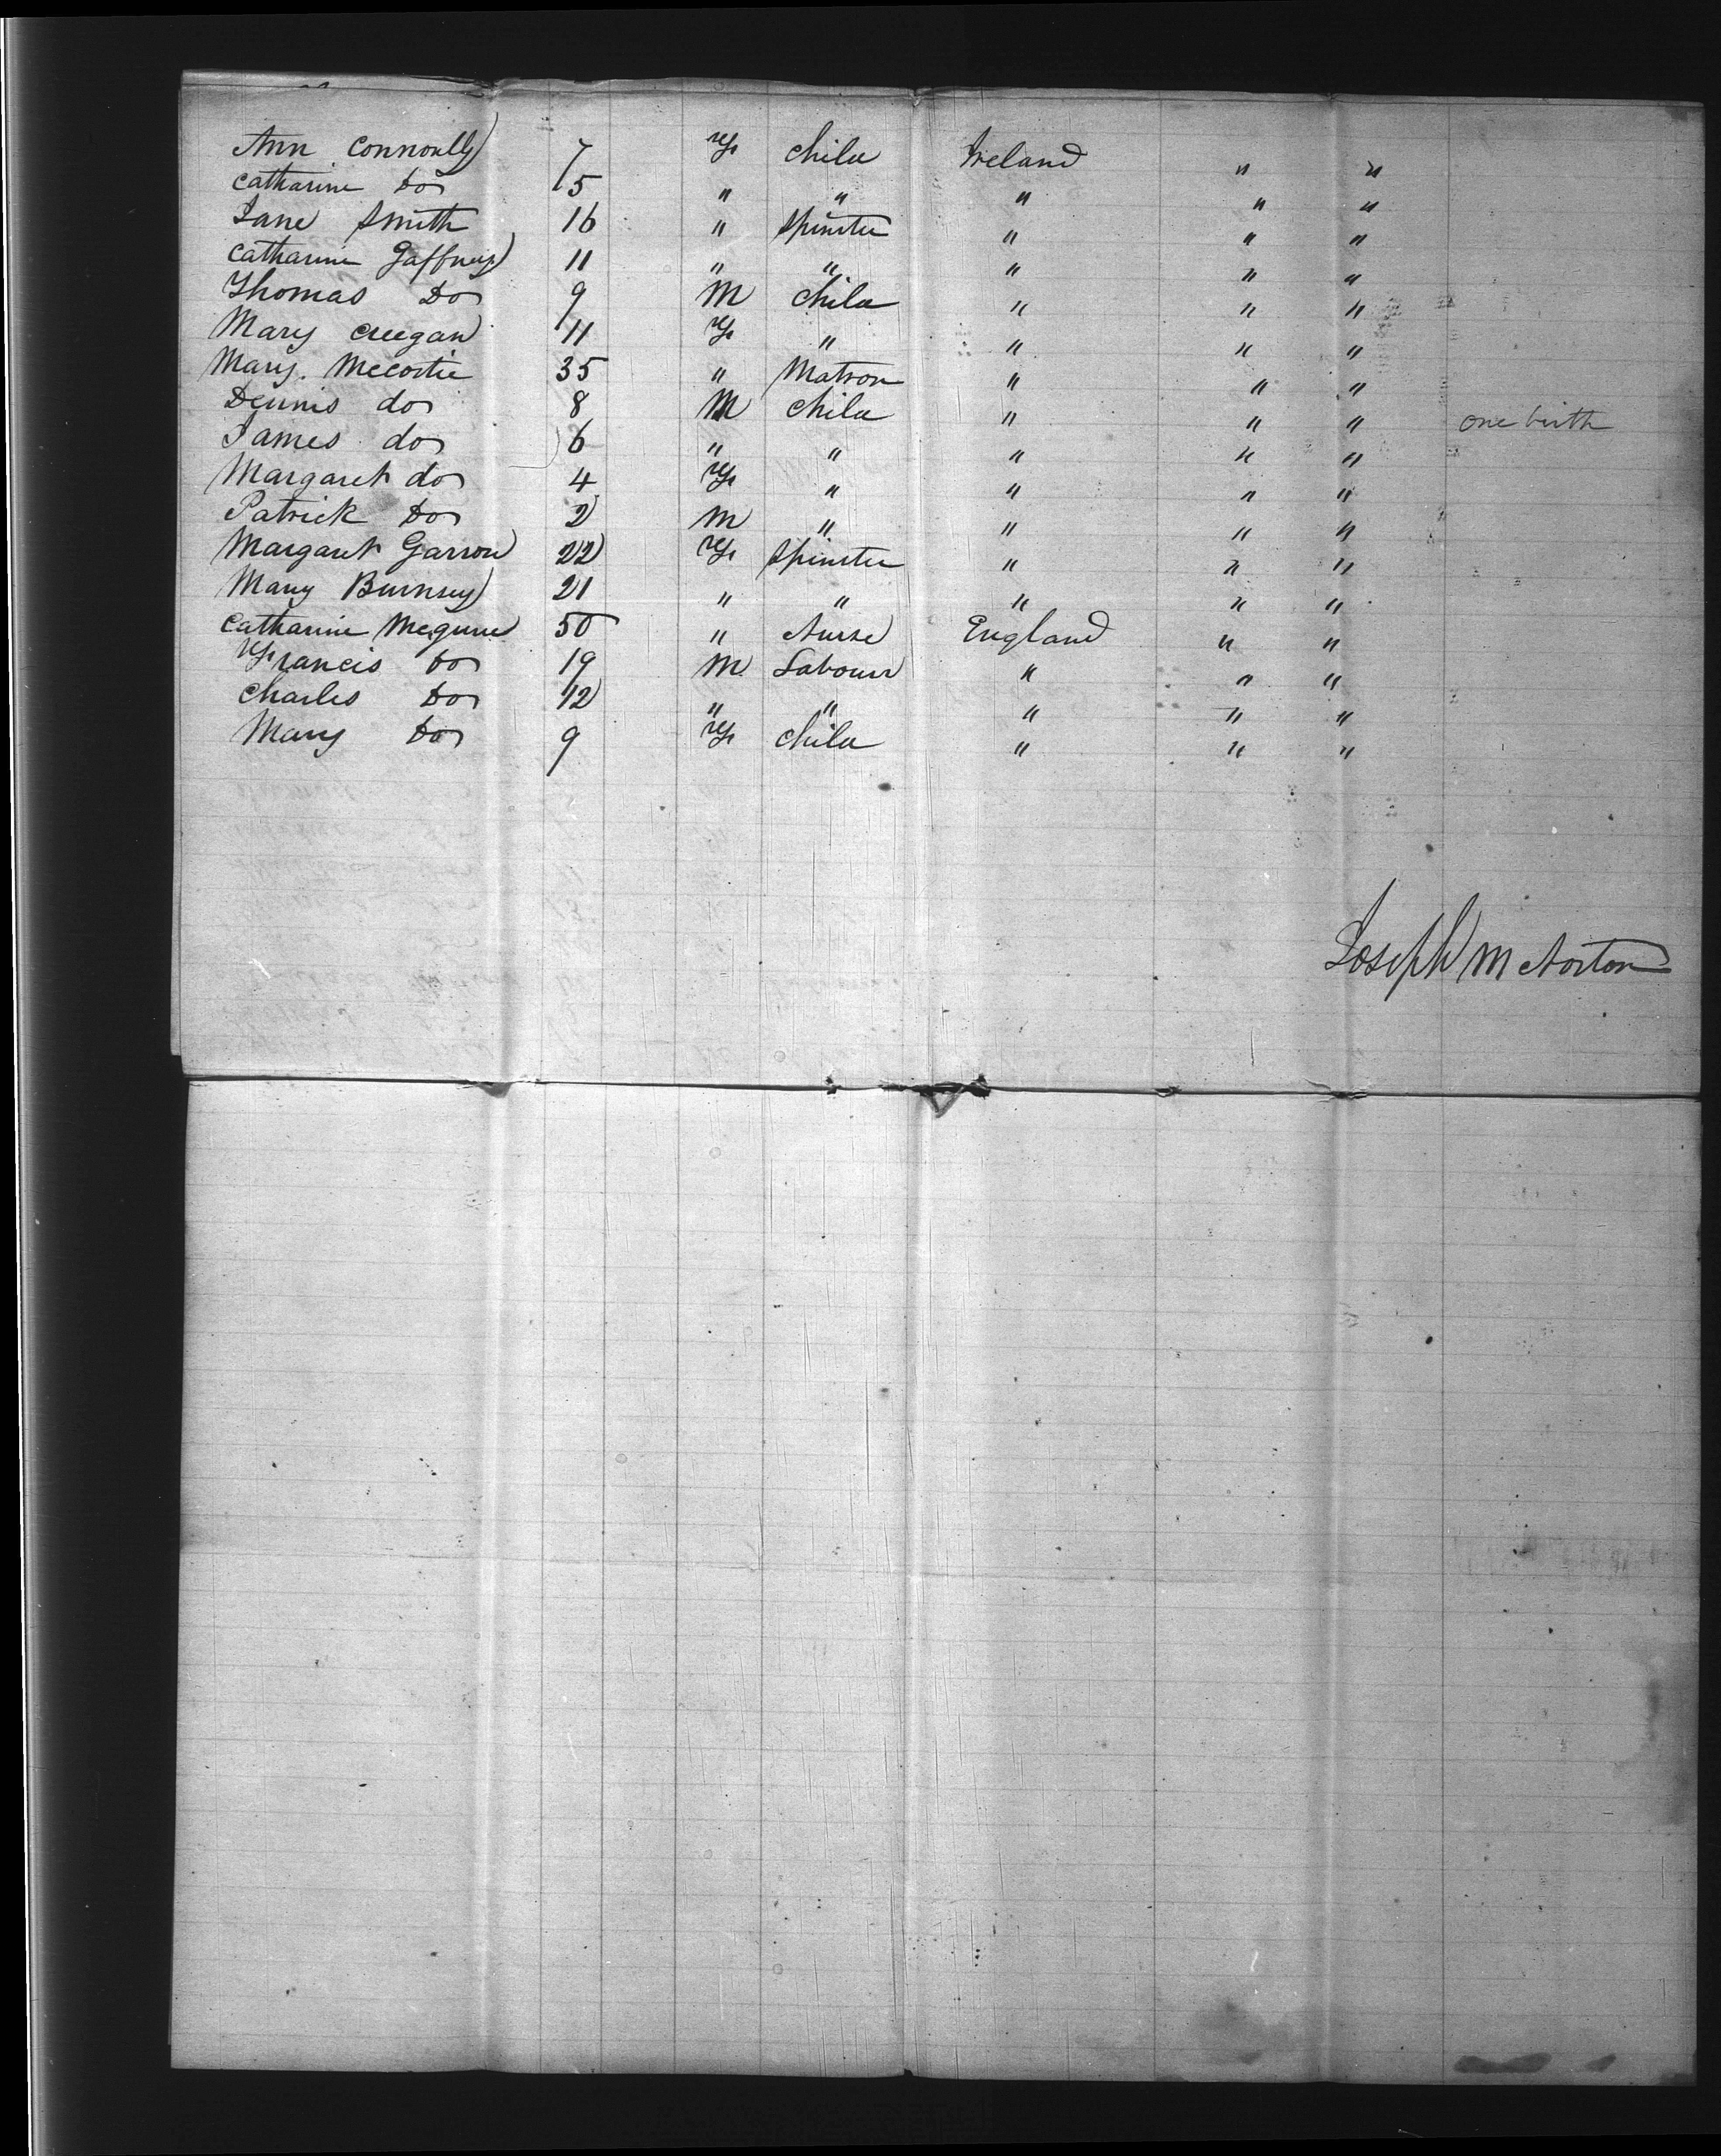 Ann Connolly 7 F Child Ireland " "
Catharine Do 5 " " " " "
Jane Smith 16 " Spinster " " "
Catharine Gaffney 11 " " " " "
Thomas Do 9 M Child " " "
Mary Creegan 11 F " " " "
Mary. McCostie 35 " Matron " " "
Dennis do 8 M Child " " " one birth
James do 6 " " " " "
Margaret do 4 F " " " "
Patrick Do 2 M " " " "
Margaret Garrow 22 F Spinster " " "
Mary Burnsey 21 " " " " "
Catharine Mcgune 50 " Nurse England " "
Francis Do 19 M Labour " " "
Charles Do 12 " " " " "
Mary Do 9 F Child " " "
Joseph M Norton